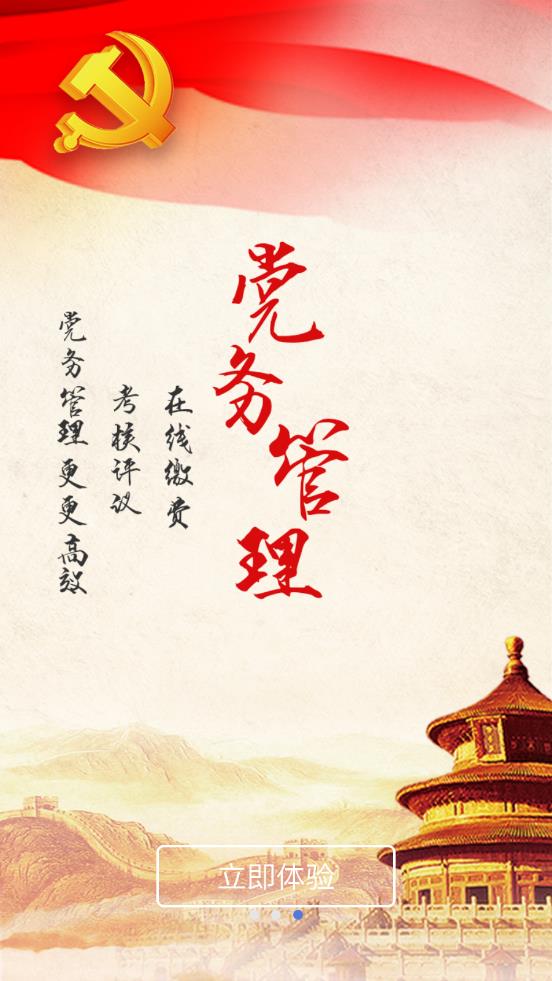 党务管理
在线缴费
考核评议
党务管理更更高效
立即体验